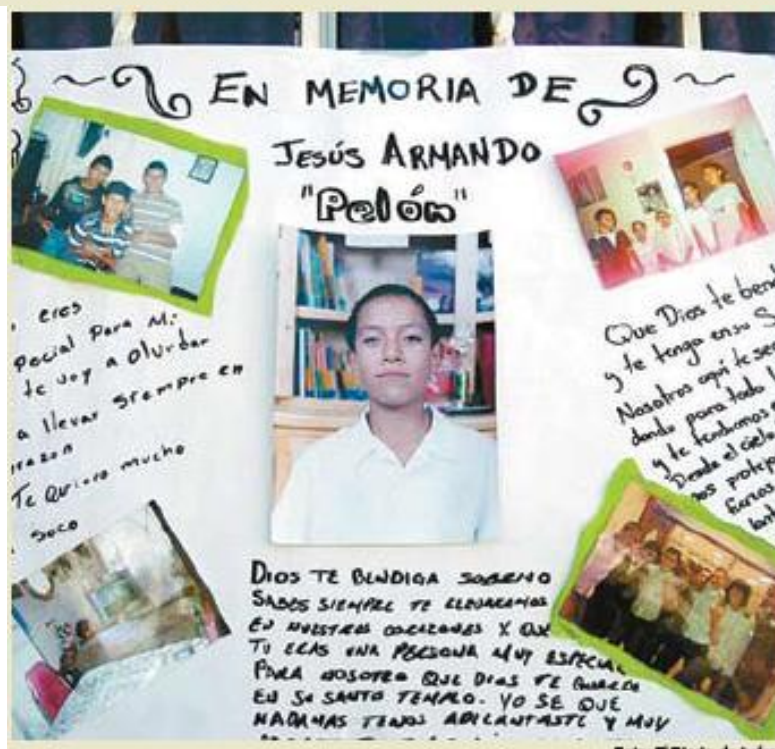 EN MEMORIA DE
JESÚS ARMANDO
"Pelón"
eres
pecial Para Mi
te voy a olvidar
a llevar siempre en
razon
Te Quiero mucho
Soco
Que Dios te ben
y te tenga en su S
Nosotros aqui te se
dando para todo l
y te tendremos
Desde el cielo
nos protej
DIOS TE BENDIGA SOBRINO
SABES SIEMPRE TE LLEVAREMOS
EN NUESTROS CORAZONES X QUE
TU ERAS UNA PERSONA MUY ESPECIAL
PARA NOSOTRO QUE DIOS TE GUARDE
EN SU SANTO TEMPLO. YO SE QUE
NADAMAS TENOS ADELANTASTE Y MUY